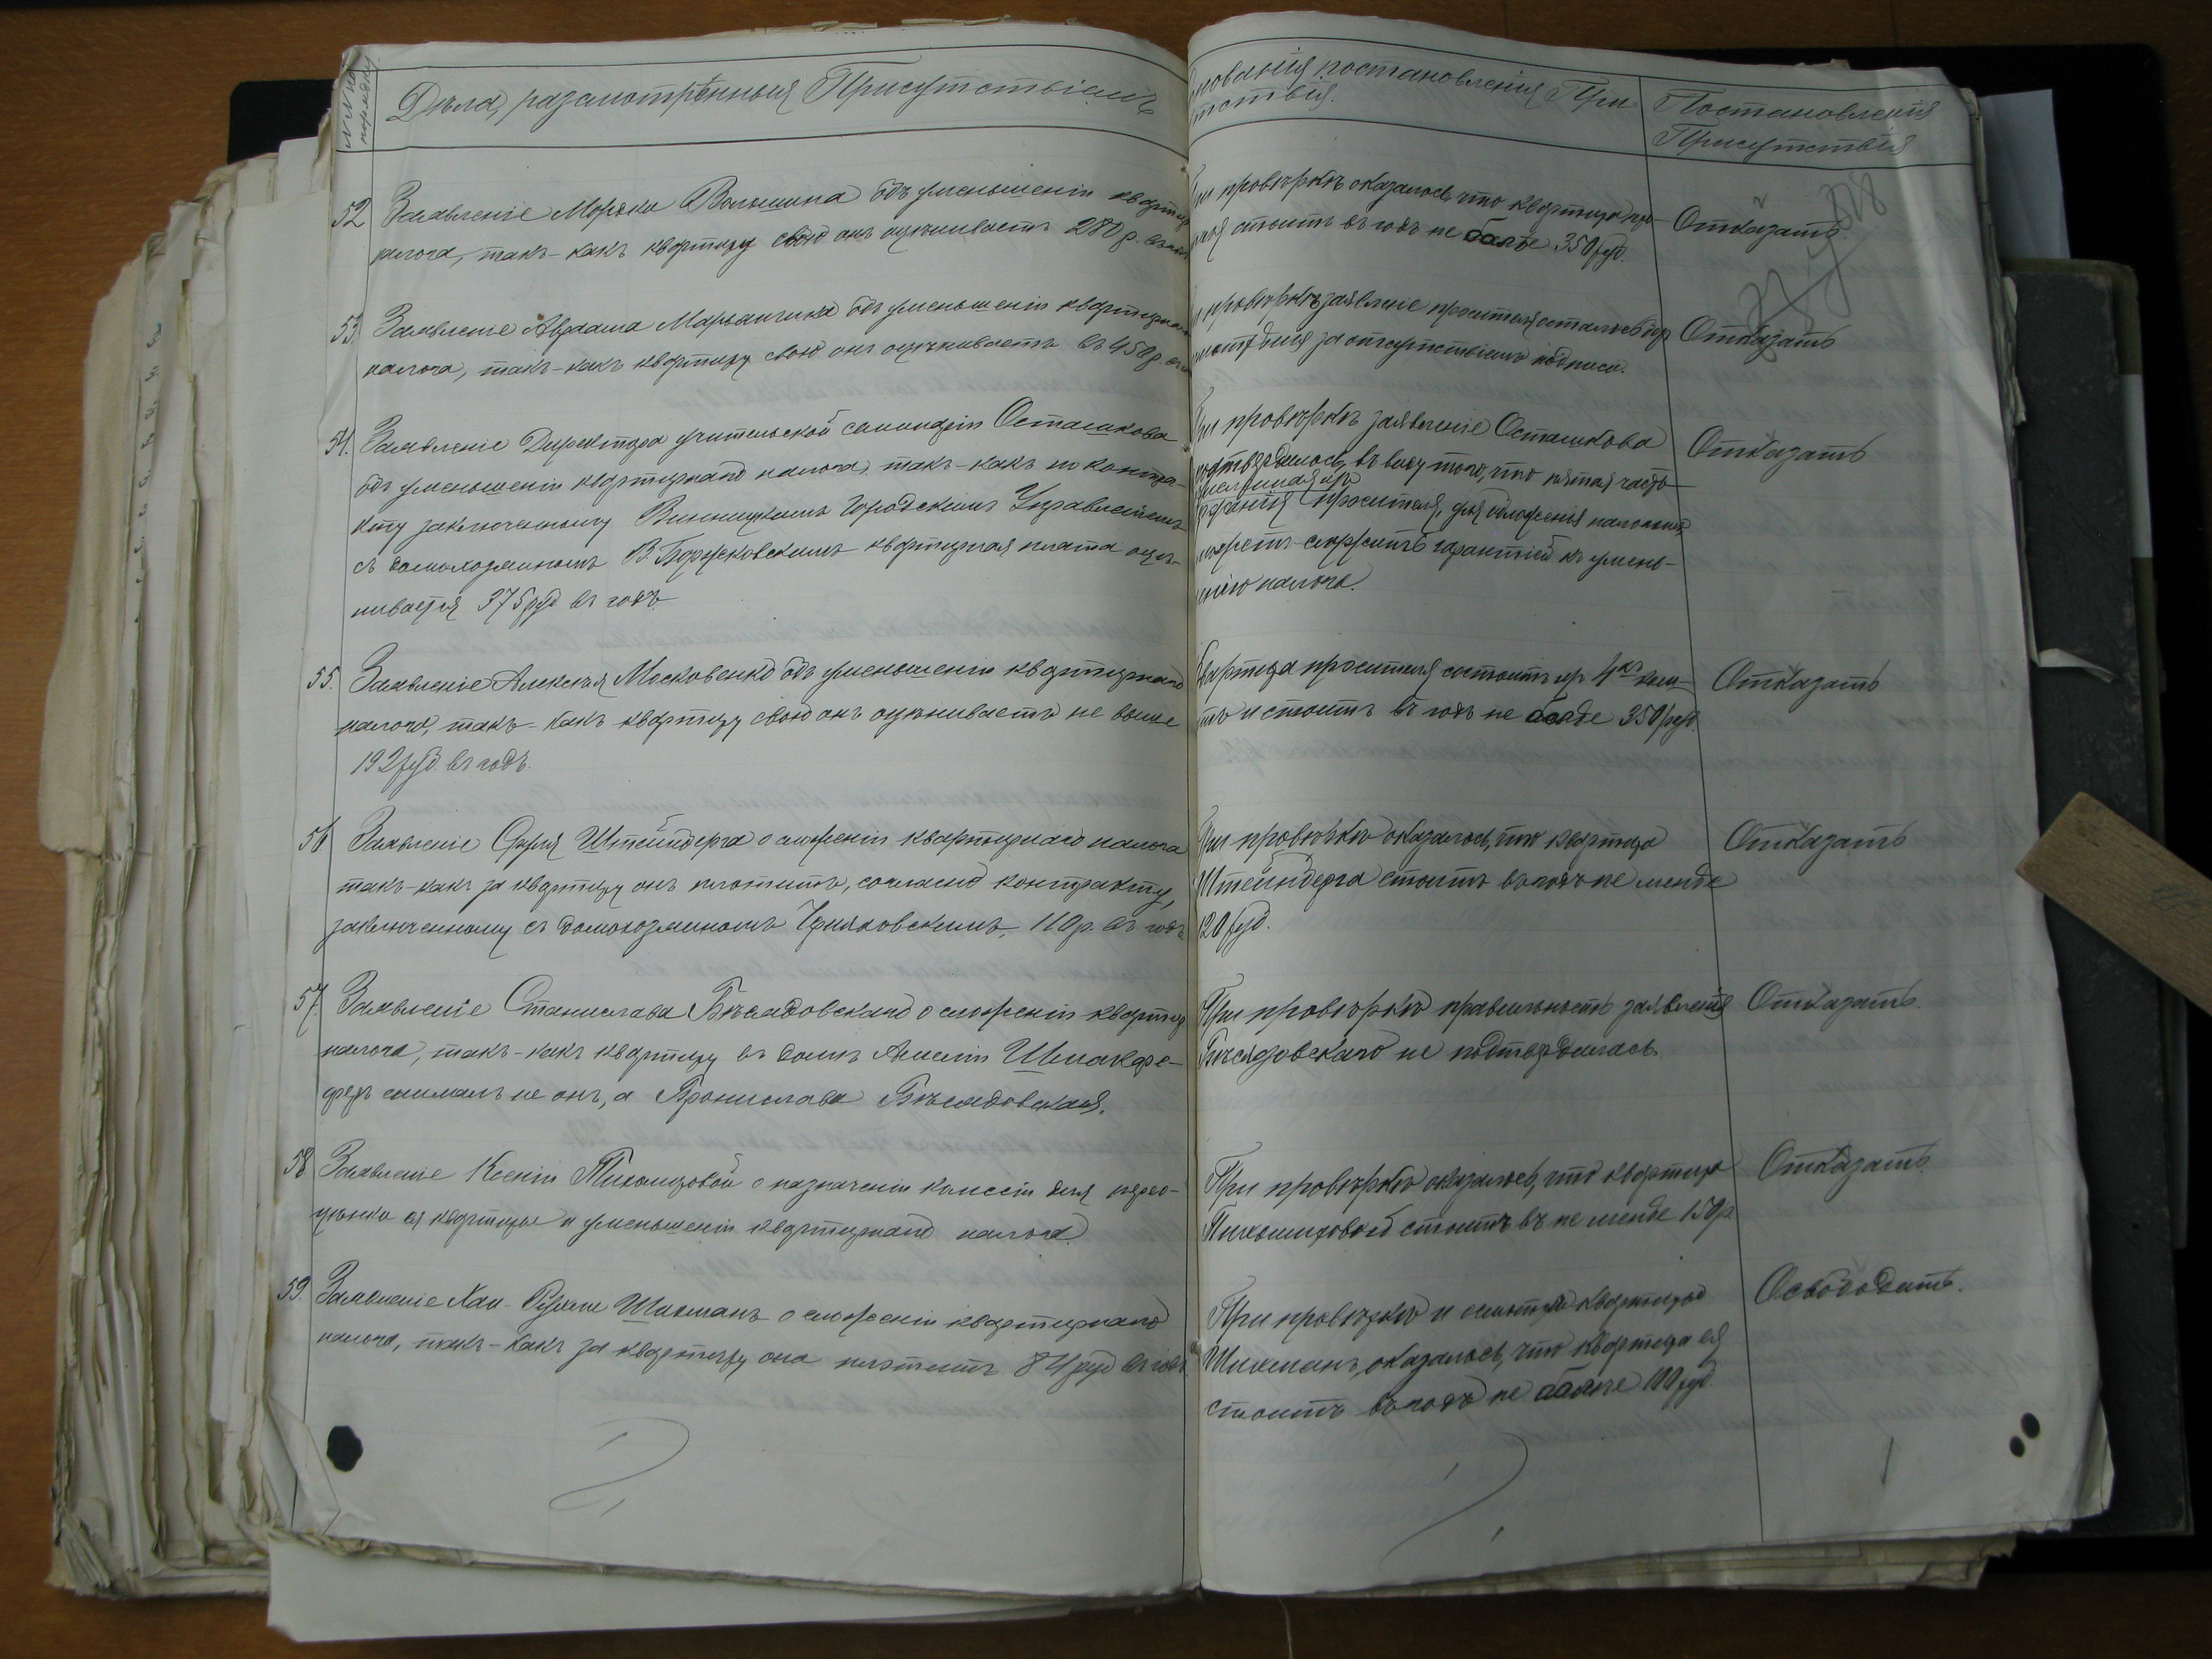 №№ по порядку
Дѣла, разсмотрѣнныя Присутствіемъ
52 Заявленіе Мордки Волошина объ уменьшеніи квартир
налога, такъ-какъ квартиру свою онъ оцѣниваетъ 280 р. въ годъ
53. Заявленіе Авраама Марьянчика объ уменьшеніи квартирнаго
налога, такъ-какъ квартиру свою онъ оцѣниваетъ въ 450 р.
54. Заявленіе Директора учительской семинаріи Осташкова
объ уменьшеніи квартирнаго налога, такъ-какъ по контра-
кту заключенному Винницкимъ Городскимъ Управленіемъ
съ домохозяиномъ В. квартирная плата оцѣ-
нивается 375 руб въ годъ
55. Заявленіе Алексѣя Московенко объ уменьшеніи квартирнаго
налога, такъ-какъ квартиру свою онъ оцѣниваетъ не выше
192 руб. въ годъ.
56 Заявленіе Штейнберга о сложеніи квартирнаго налога
такъ-какъ за квартиру онъ платитъ, согласно контракту,
заключенному съ домохозяиномъ 110 р. въ годъ
57. Заявленіе Станислава Бѣсядовскаго о сложеніи квартир
налога, такъ-какъ квартиру въ домѣ Амеліи
снималъ не онъ, а Бронислава Бѣсядовская.
58 Заявленіе Ксеніи Тихомировой о назначеніи комиссіи для перео-
цѣнки ея квартиры и уменьшеніи квартирнаго налога.
59. Заявленіе Шихманъ о сложеніи квартирнаго
налога, такъ-какъ за квартиру она платитъ 84 руб въ годъ
нованія постановленія При
тствія.
Постановленія
Присутствія
ри провѣркѣ оказалось, что квартира про-
стоитъ въ годъ не болѣе 350 руб.
Отказать.
провѣркѣ заявленіе просителя осталось безъ
за отсутствіемъ подписи.
Отказать
ри провѣркѣ заявленіе Осташкова
подтвердилось, въ виду того, что пятая часть
просителя, для обложенія налогомъ
можетъ служить гарантіей къ умень-
шенію налога.
Отказать
Квартира просителя состоитъ изъ 4хъ ком-
тъ и стоитъ въ годъ не болѣе 350 руб.
Отказать
При провѣркѣ оказалось, что квартира
Штейнберга стоитъ въ годъ не менѣе
120 руб.
Отказать
При провѣркѣ правильность заявленія
Бѣсядовскаго не подтвердилась.
Отказать.
При провѣркѣ оказалось, что квартира
Тихомировой стоитъ въ не менѣе 150 р.
Отказать.
При провѣркѣ и осмотрѣ квартиры
Шихманъ, оказалось, что квартира ея
стоитъ въ годъ не болѣе 100 руб.
Освободить.